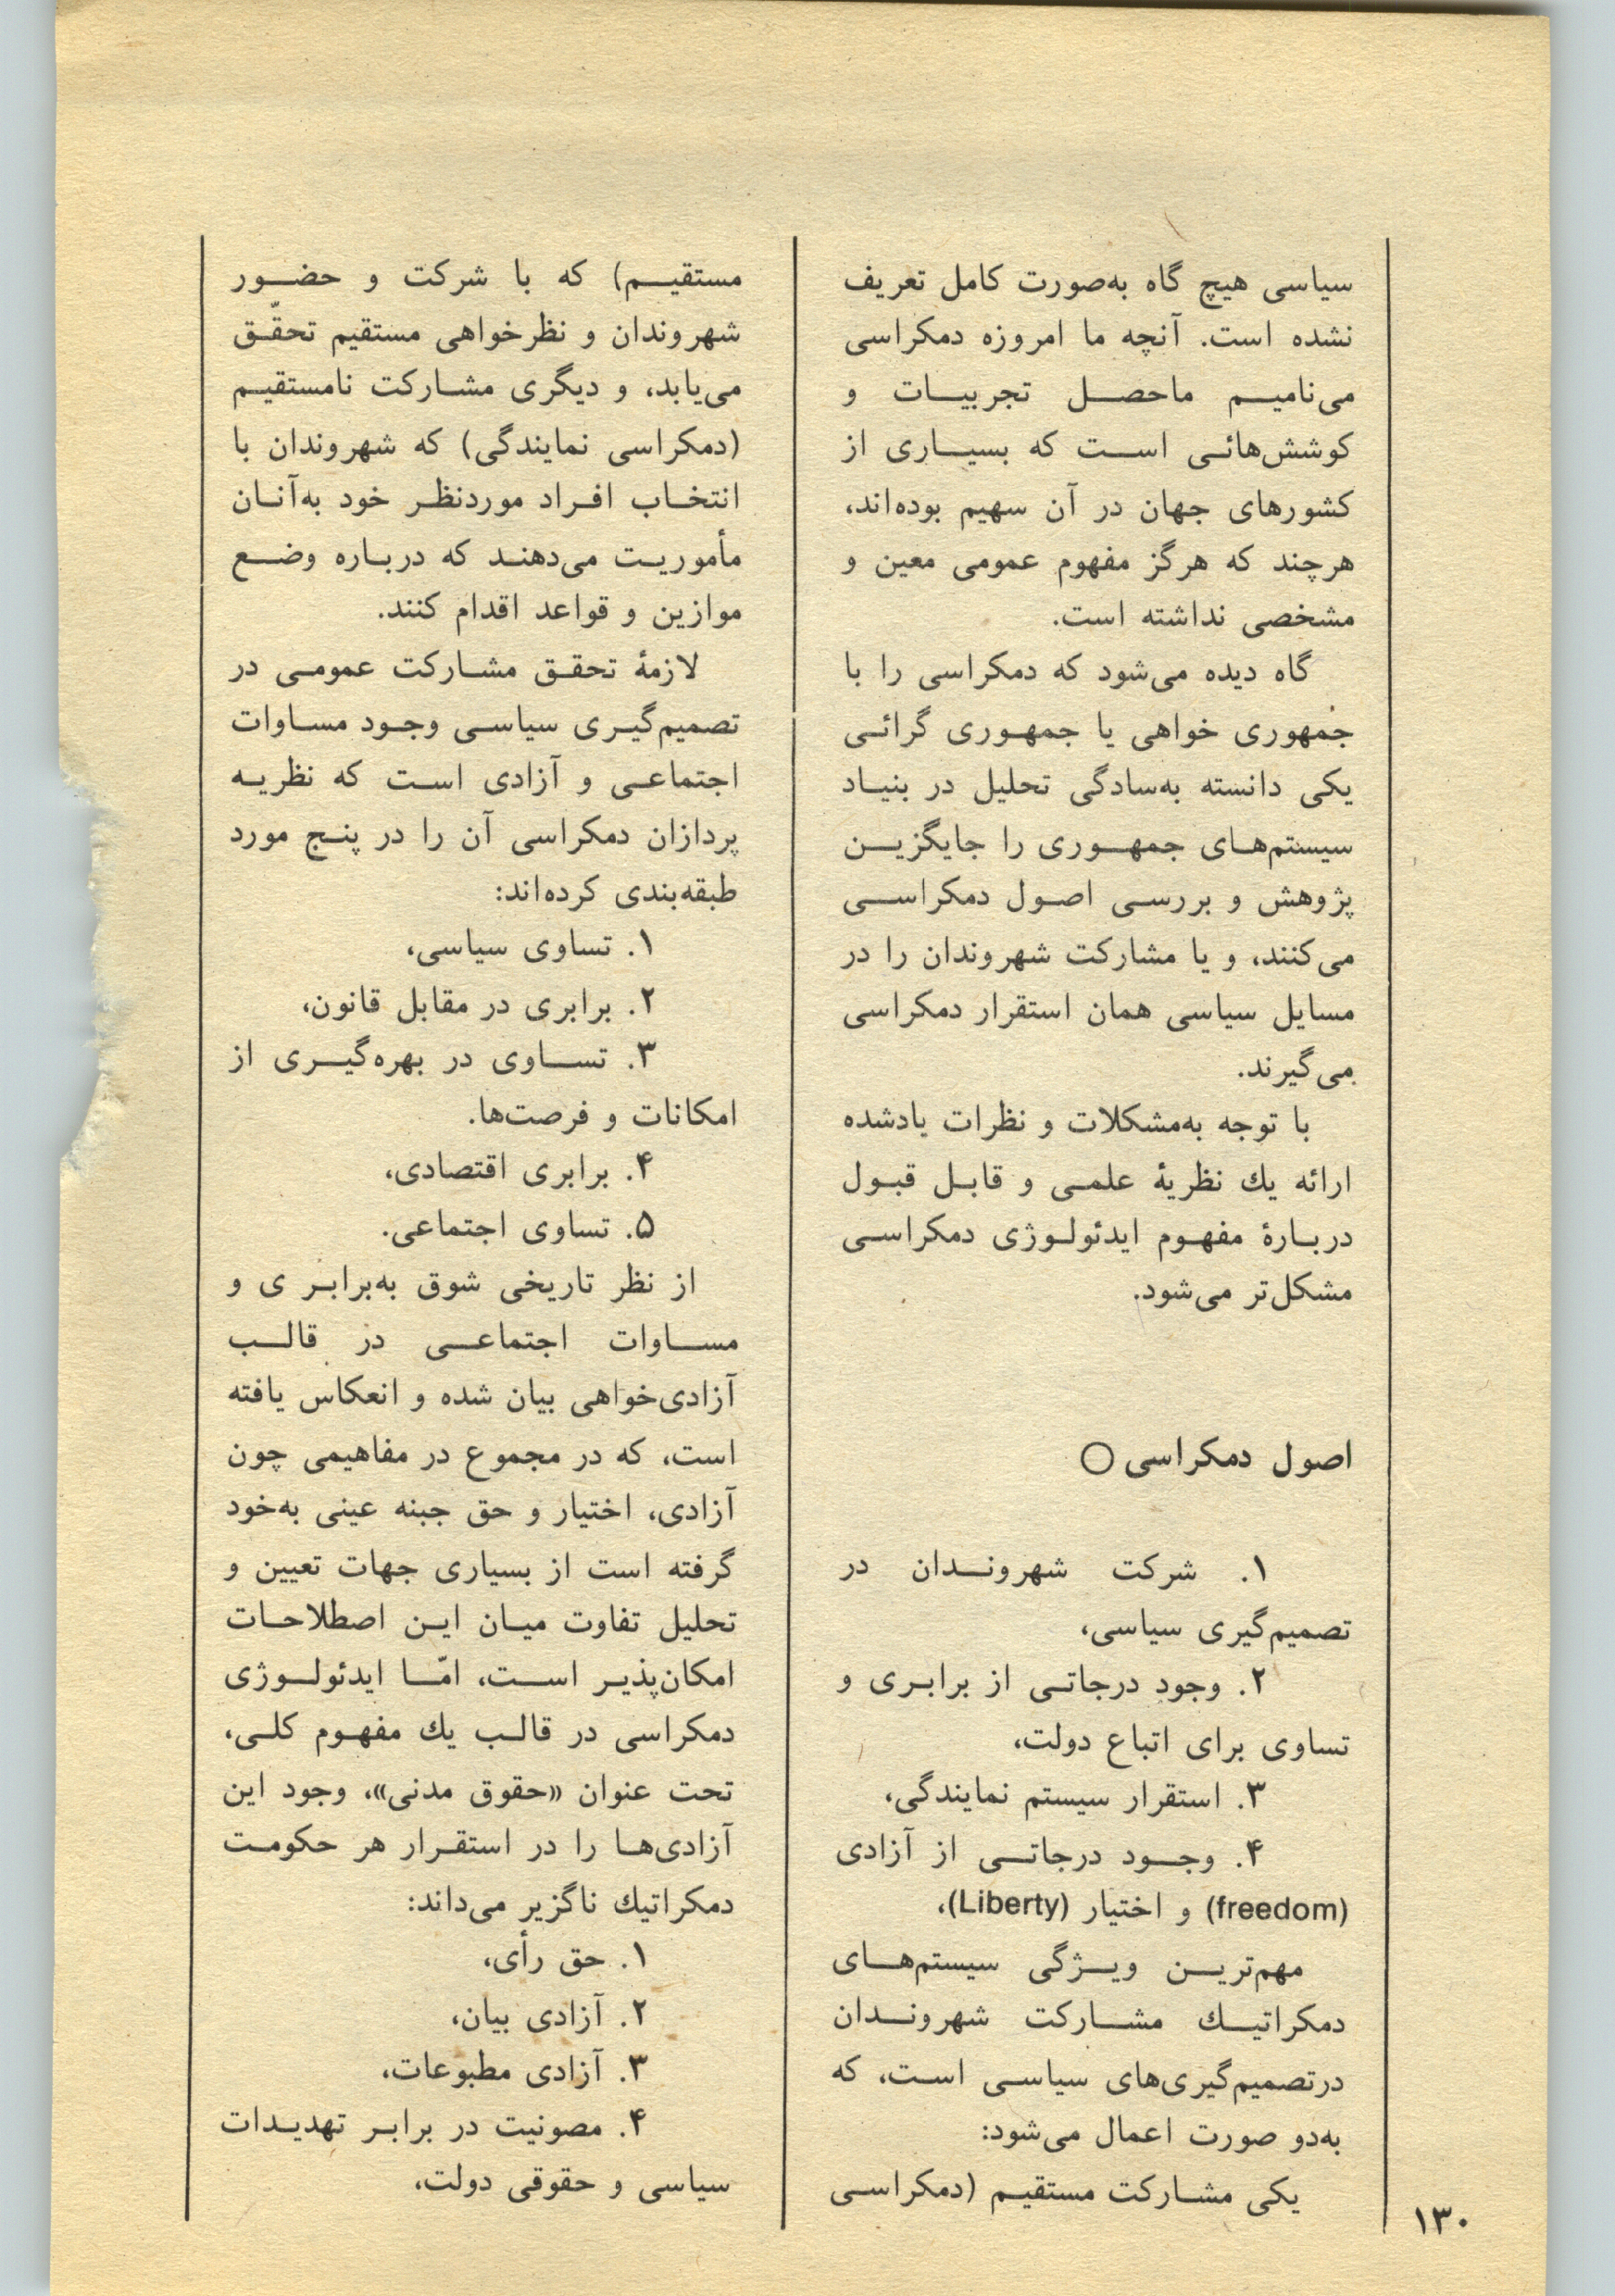 سیاسی هیچ گاه به‌صورت کامل تعریف
نشده است. آنچه ما امروزه دمکراسی
می‌نامیم ماحصل تجربیات و
کوشش‌هائی است که بسیاری از
کشورهای جهان در آن سهیم بوده‌اند،
هرچند که هرگز مفهوم عمومی معین و
مشخصی نداشته است.
گاه دیده می‌شود که دمکراسی را با
جمهوری خواهی یا جمهوری گرائی
یکی دانسته به‌سادگی تحلیل در بنیاد
سیستم‌های جمهوری را جایگزین
پژوهش و بررسی اصول دمکراسی
می‌کنند، و یا مشارکت شهروندان را در
مسایل سیاسی همان استقرار دمکراسی
می‌گیرند.
با توجه به‌مشکلات و نظرات یادشده
ارائه یك نظریهٔ علمی و قابل قبول
دربارهٔ مفهوم ایدئولوژی دمکراسی
مشکل‌تر می‌شود.
اصول دمکراسی ○
۱. شرکت شهروندان در
تصمیم‌گیری سیاسی،
۲. وجود درجاتی از برابری و
تساوی برای اتباع دولت،
۳. استقرار سیستم نمایندگی،
۴. وجود درجاتی از آزادی
(freedom) و اختیار (Liberty)،
مهم‌ترین ویژگی سیستم‌های
دمکراتیك مشارکت شهروندان
درتصمیم‌گیری‌های سیاسی است، که
به‌دو صورت اعمال می‌شود:
یکی مشارکت مستقیم (دمکراسی
مستقیم) که با شرکت و حضور
شهروندان و نظرخواهی مستقیم تحقّق
می‌یابد، و دیگری مشارکت نامستقیم
(دمکراسی نمایندگی) که شهروندان با
انتخاب افراد موردنظر خود به‌آنان
مأموریت می‌دهند که درباره وضع
موازین و قواعد اقدام کنند.
لازمهٔ تحقق مشارکت عمومی در
تصمیم‌گیری سیاسی وجود مساوات
اجتماعی و آزادی است که نظریه
پردازان دمکراسی آن را در پنج مورد
طبقه‌بندی کرده‌اند:
۱. تساوی سیاسی،
۲. برابری در مقابل قانون،
۳. تساوی در بهره‌گیری از
امکانات و فرصت‌ها.
۴. برابری اقتصادی،
۵. تساوی اجتماعی.
از نظر تاریخی شوق به‌برابر ی و
مساوات اجتماعی در قالب
آزادی‌خواهی بیان شده و انعکاس یافته
است، که در مجموع در مفاهیمی چون
آزادی، اختیار و حق جبنه عینی به‌خود
گرفته است از بسیاری جهات تعیین و
تحلیل تفاوت میان این اصطلاحات
امکان‌پذیر است، امّا ایدئولوژی
دمکراسی در قالب یك مفهوم کلی،
تحت عنوان «حقوق مدنی»، وجود این
آزادی‌ها را در استقرار هر حکومت
دمکراتیك ناگزیر می‌داند:
۱. حق رأی،
۲. آزادی بیان،
۳. آزادی مطبوعات،
۴. مصونیت در برابر تهدیدات
سیاسی و حقوقی دولت،
۱۳۰